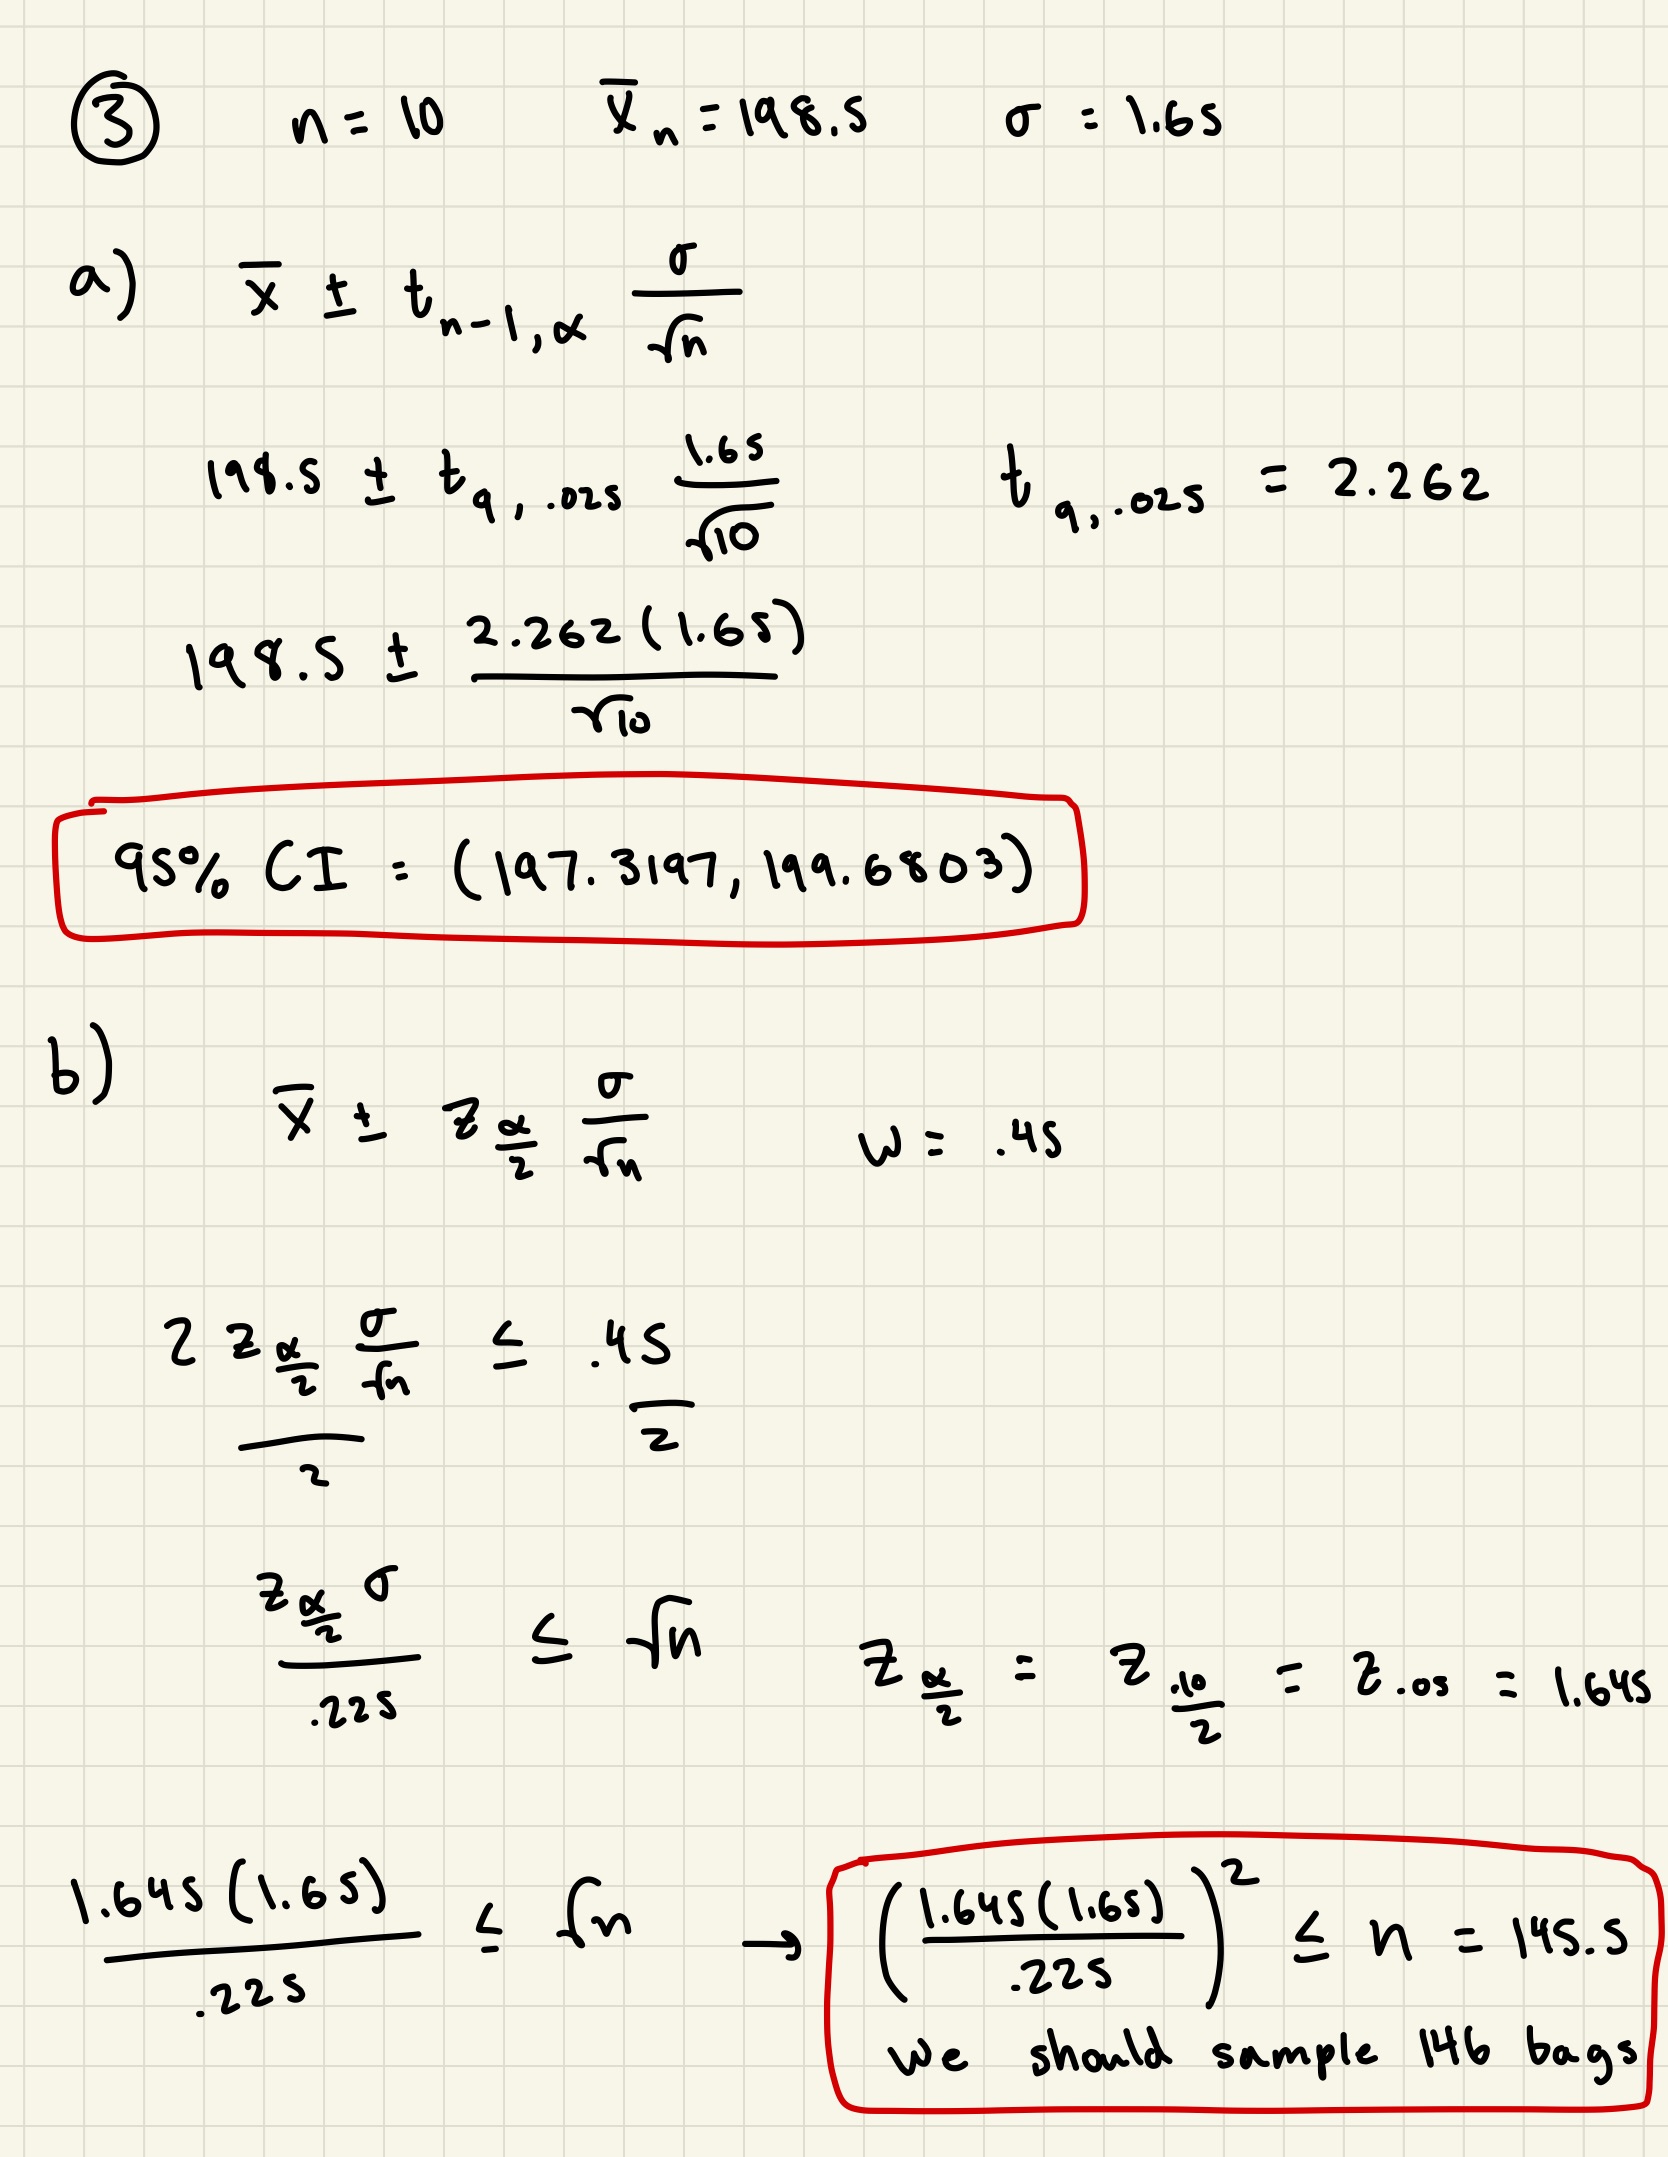 ③ n = 10 X̄ₙ = 198.5 σ = 1.65
a) x̄ ± t_{n-1, α} σ/√n
198.5 ± t_{9, .025} 1.65/√10 t_{9, .025} = 2.262
198.5 ± 2.262 (1.65)/√10
95% CI = (197.3197, 199.6803)
b) x̄ ± z_{α/2} σ/√n w = .45
(2 z_{α/2} σ/√n)/2 ≤ .45/2
z_{α/2} σ/.225 ≤ √n z_{α/2} = z_{.10/2} = z_{.05} = 1.645
1.645 (1.65)/.225 ≤ √n → (1.645 (1.65)/.225)² ≤ n = 145.5
We should sample 146 bags